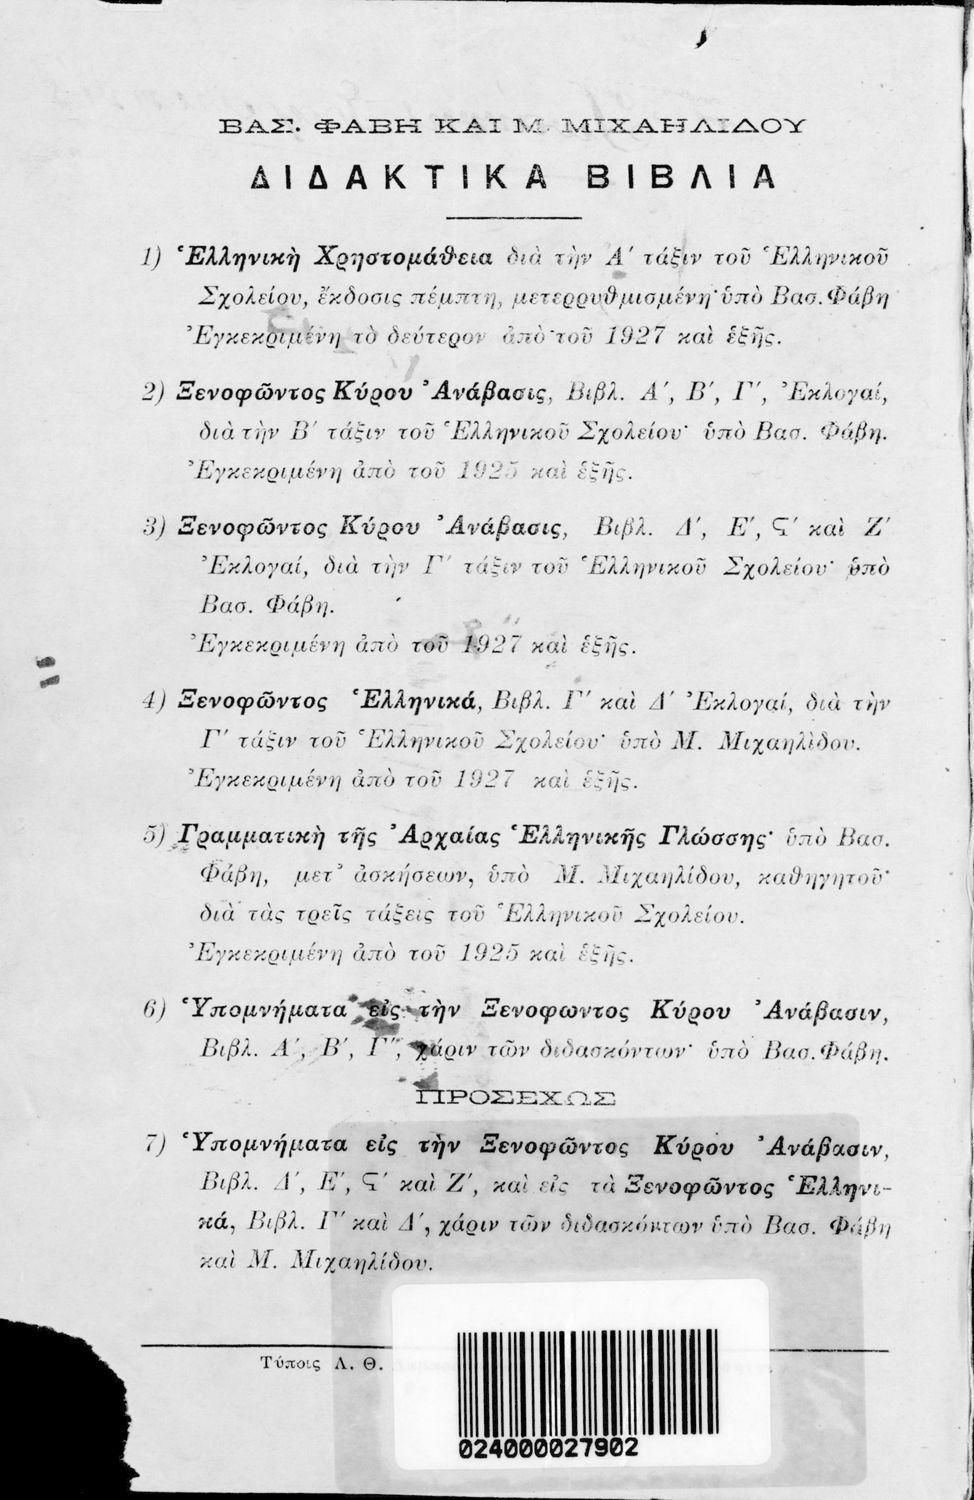 ΒΑΣ. ΦΑΒΗ ΚΑΙ Μ. ΜΙΧΑΗΛΙΔΟΥ
ΔΙΔΑΚΤΙΚΑ ΒΙΒΛΙΑ
1) Ἑλληνικὴ Χρηστομάθεια διὰ τὴν Α΄ τάξιν τοῦ Ἑλληνικοῦ
Σχολείου, ἔκδοσις πέμπτη, μετερρυθμισμένη· ὑπὸ Βασ. Φάβη
Ἐγκεκριμένη τὸ δεύτερον ἀπὸ τοῦ 1927 καὶ ἑξῆς.
2) Ξενοφῶντος Κύρου Ἀνάβασις, Βιβλ. Α΄, Β΄, Γ΄, Ἐκλογαί,
διὰ τὴν Β΄ τάξιν τοῦ Ἑλληνικοῦ Σχολείου· ὑπὸ Βασ. Φάβη.
Ἐγκεκριμένη ἀπὸ τοῦ 1925 καὶ ἑξῆς.
3) Ξενοφῶντος Κύρου Ἀνάβασις, Βιβλ. Δ΄, Ε΄, Ϛ΄ καὶ Ζ΄
Ἐκλογαί, διὰ τὴν Γ΄ τάξιν τοῦ Ἑλληνικοῦ Σχολείου· ὑπὸ
Βασ. Φάβη.
Ἐγκεκριμένη ἀπὸ τοῦ 1927 καὶ ἑξῆς.
4) Ξενοφῶντος Ἑλληνικά, Βιβλ. Γ΄ καὶ Δ΄ Ἐκλογαί, διὰ τὴν
Γ΄ τάξιν τοῦ Ἑλληνικοῦ Σχολείου· ὑπὸ Μ. Μιχαηλίδου.
Ἐγκεκριμένη ἀπὸ τοῦ 1927 καὶ ἑξῆς.
5) Γραμματικὴ τῆς Ἀρχαίας Ἑλληνικῆς Γλώσσης· ὑπὸ Βασ.
Φάβη, μετ' ἀσκήσεων, ὑπὸ Μ. Μιχαηλίδου, καθηγητοῦ·
διὰ τὰς τρεῖς τάξεις τοῦ Ἑλληνικοῦ Σχολείου.
Ἐγκεκριμένη ἀπὸ τοῦ 1925 καὶ ἑξῆς.
6) Ὑπομνήματα εἰς τὴν Ξενοφωντος Κύρου Ἀνάβασιν,
Βιβλ. Α΄, Β΄, Γ΄, χάριν τῶν διδασκόντων· ὑπὸ Βασ. Φάβη.
ΠΡΟΣΕΧΩΣ
7) Ὑπομνήματα εἰς τὴν Ξενοφῶντος Κύρου Ἀνάβασιν,
Βιβλ. Δ΄, Ε΄, Ϛ΄ καὶ Ζ΄, καὶ εἰς τὰ Ξενοφῶντος Ἑλληνι-
κά, Βιβλ. Γ΄ καὶ Δ΄, χάριν τῶν διδασκόντων ὑπὸ Βασ. Φάβη
καὶ Μ. Μιχαηλίδου.
Τύποις Λ. Θ.
024000027902